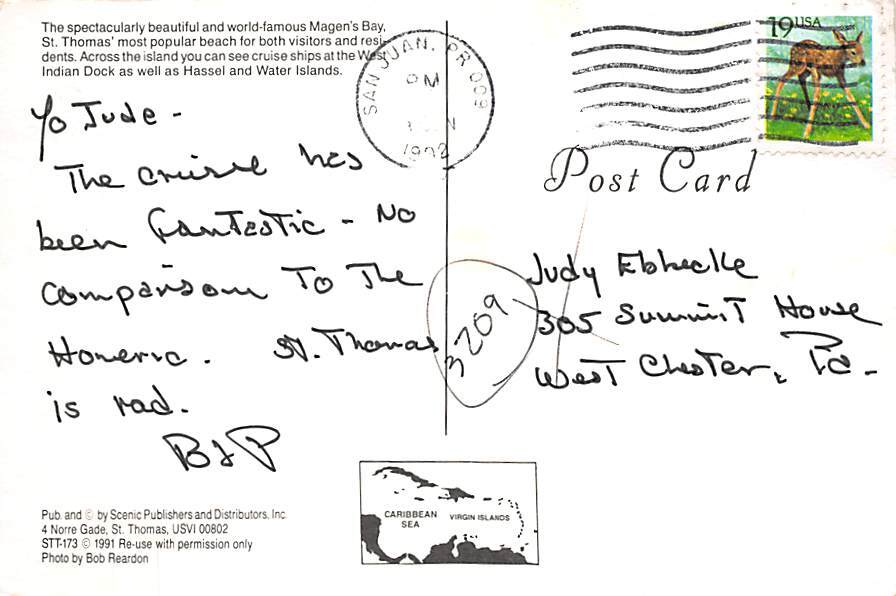 The spectacularly beautiful and world-famous Magen's Bay,
St. Thomas' most popular beach for both visitors and resi-
dents. Across the island you can see cruise ships at the West
Indian Dock as well as Hassel and Water Islands.
SAN JUAN, PR 009
PM
1992
19 USA
Post Card
Yo Jude -
The cruise has
been fantastic - No
comparison to the
Homeric. St. Thomas
is rad.
B & P
3209
Judy Ebhecke
305 Summit House
West Chester, Pa.
CARIBBEAN
SEA
VIRGIN ISLANDS
Pub. and © by Scenic Publishers and Distributors, Inc.
4 Norre Gade, St. Thomas, USVI 00802
STT-173 © 1991 Re-use with permission only
Photo by Bob Reardon